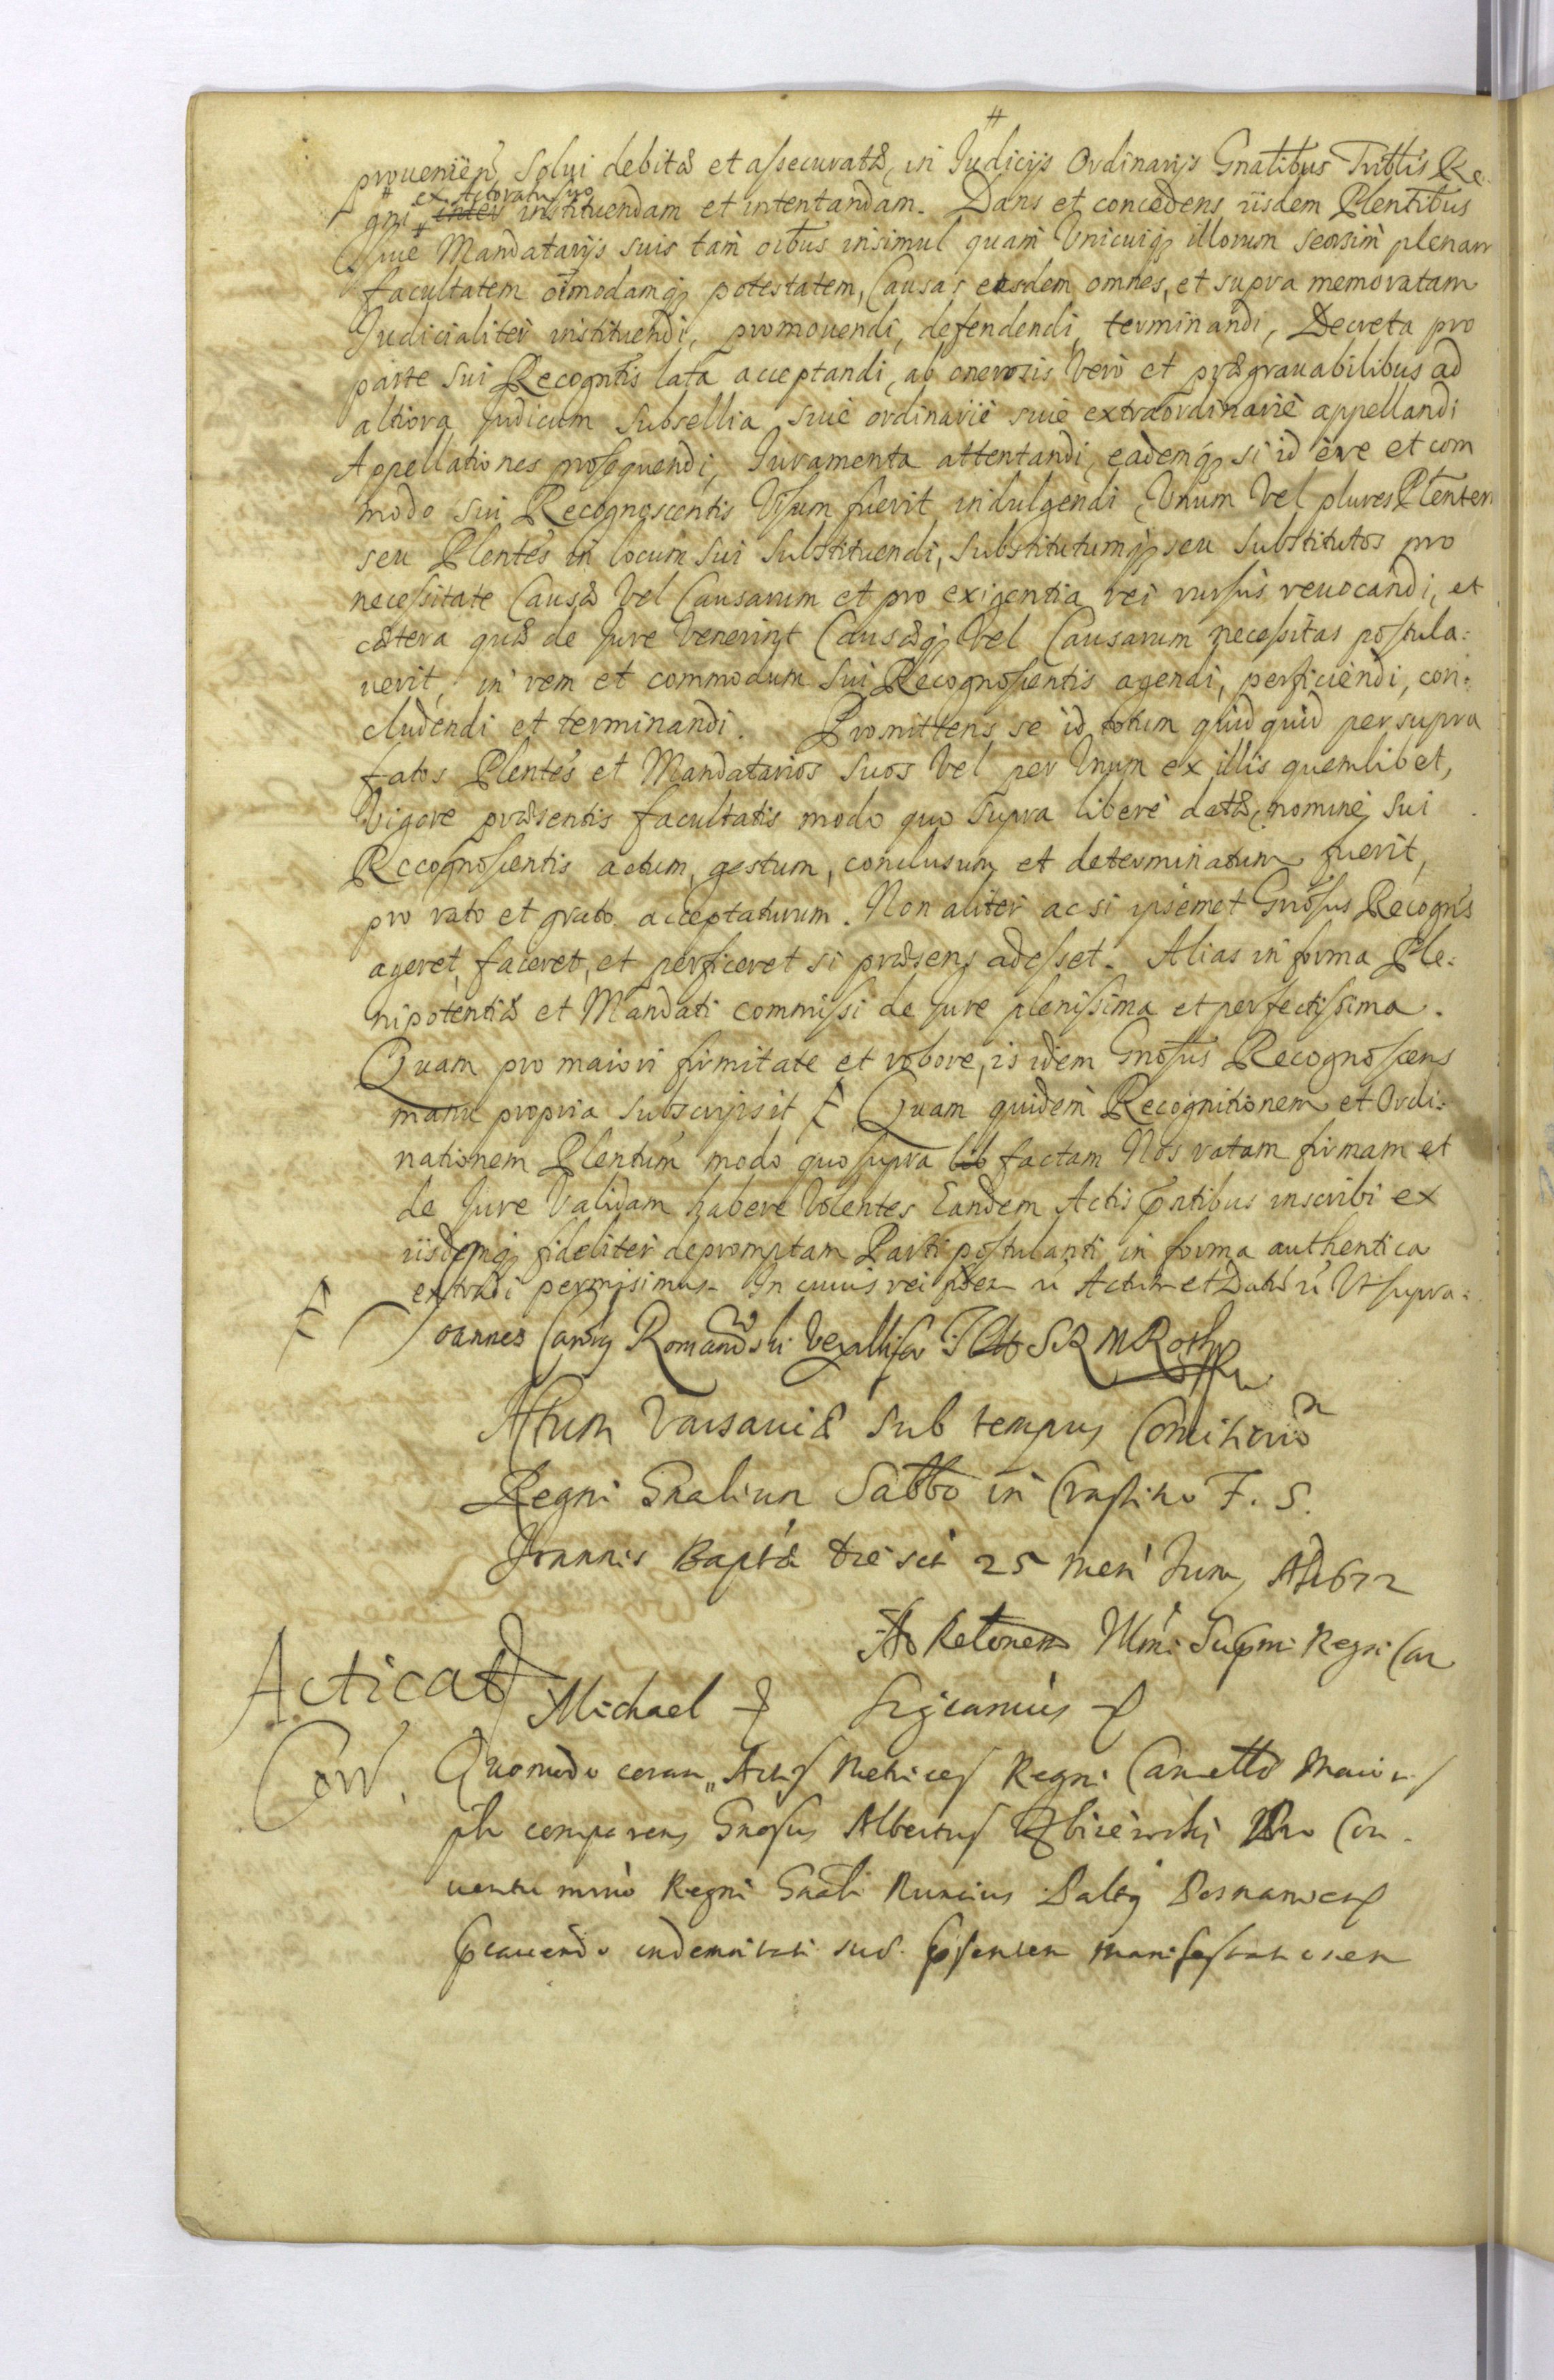 prouenien̄ solui debitæ et assecuratæ, in # Iudicijs Ordinarijs Gnalibus Tribtis Re-
gni # ex Actoratu suo inter instituendam et intentandam. Dans et concedens iisdem Plentibus
siue Mandatarijs suis tam oibus insimul quam Vnicuiq illorum seorsim plenam
facultatem oimodamq potestatem, Causas easdem omnes, et supra memoratam
Iudicialiter instituendi, promouendi, defendendi, terminandi, Decreta pro
parte sui Recogntis lata acceptandi, ab onerosis Vero et prægrauabilibus ad
altiora Judicum Subsellia siue ordinarie siue extraordinarie appellandi
Appellationes prosequendi, Iuramenta attentandi, eademq si id e re et com
modo sui Recognoscentis Visum fuerit indulgendi, Vnum Vel plures Plenten
seu Plentes in locum sui Substituendi, Substitutumq seu Substitutos pro
necessitate Causæ Vel Causarum et pro exigentia rei rursus reuocandi, et
cætera quæ de Jure Venerint Causæq Vel Causarum necessitas postula:
uerit, in rem et commodum Sui Recognoscentis agendi, perficiendi, con:
cludendi et terminandi. Promittens se id totum quidquid per supra
fatos Plentes et Mandatarios Suos Vel per Vnum ex illis quemlibet,
Vigore præsentis facultatis modo quo supra libere datæ, nomine Sui
Recognoscentis actum, gestum, conclusum et determinatum fuerit,
pro rato et grato acceptaturum. Non aliter ac si ipsemet Gnosus Recogns
ageret, faceret, et perficeret si præsens adesset. Alias in forma Ple:
nipotentiæ et Mandati commissi de Jure plenissima et perfectissima.
Quam pro maiori firmitate et robore, is idem Gnosus Recognoscens
manu propria subscripsit Quam quidem Recognitionem et Ordi:
nationem Plentum modo quo supra lib factam Nos ratam firmam et
de Jure Validam habere Volentes Eandem Actis pntibus inscribi ex
iisdemq fideliter depromptam Parti postulanti in forma authentica
extradi permisimus. In cuius rei fidem Actum et Datū Vt supra.
Ioannes Romanowski Vexillifer SRM Rothr
Actum Varsauiæ sub tempus Comitiorū
Regni Gnalium Sabbo in Crastino F. S.
Joannis Baptæ die sct 25 men Juny AD 1672
Ad Relonem Illmi Supmi Regni Can
Acticat
Michael
Cor. Quomodo coram Actis Metrices Regni Cancell Maioris
plr comparens Gnosus Albertus Pro Con-
uentu Regni Gnali Nuncius Palts Posnaniens
pcauendo indemnitati suæ pñsentem manifestationem